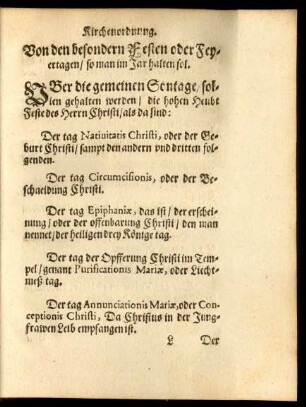 Kirchenordnung.
Von den besondern Festen oder Fey-
ertagen/ so man im Jar halten sol.
Uber die gemeinen Sontage/ sol-
len gehalten werden/ die hohen Heubt
Feste des Herrn Christi/ als da sind:
Der tag Nativitatis Christi, oder der Ge-
burt Christi/ sampt den andern vnd dritten fol-
genden.
Der tag Circumcisionis, oder der Be-
schneidung Christi.
Der tag Epiphaniæ, das ist/ der erschei-
nung/ oder der offenbarung Christi/ den man
nennet/ der heiligen drey Könige tag.
Der tag der Opfferung Christi im Tem-
pel/ genant Purificationis Mariæ, oder Liecht-
meß tag.
Der tag Annunciationis Mariæ, oder Con-
ceptionis Christi, Da Christus in der Jung-
frawen Leib empfangen ist.
L Der